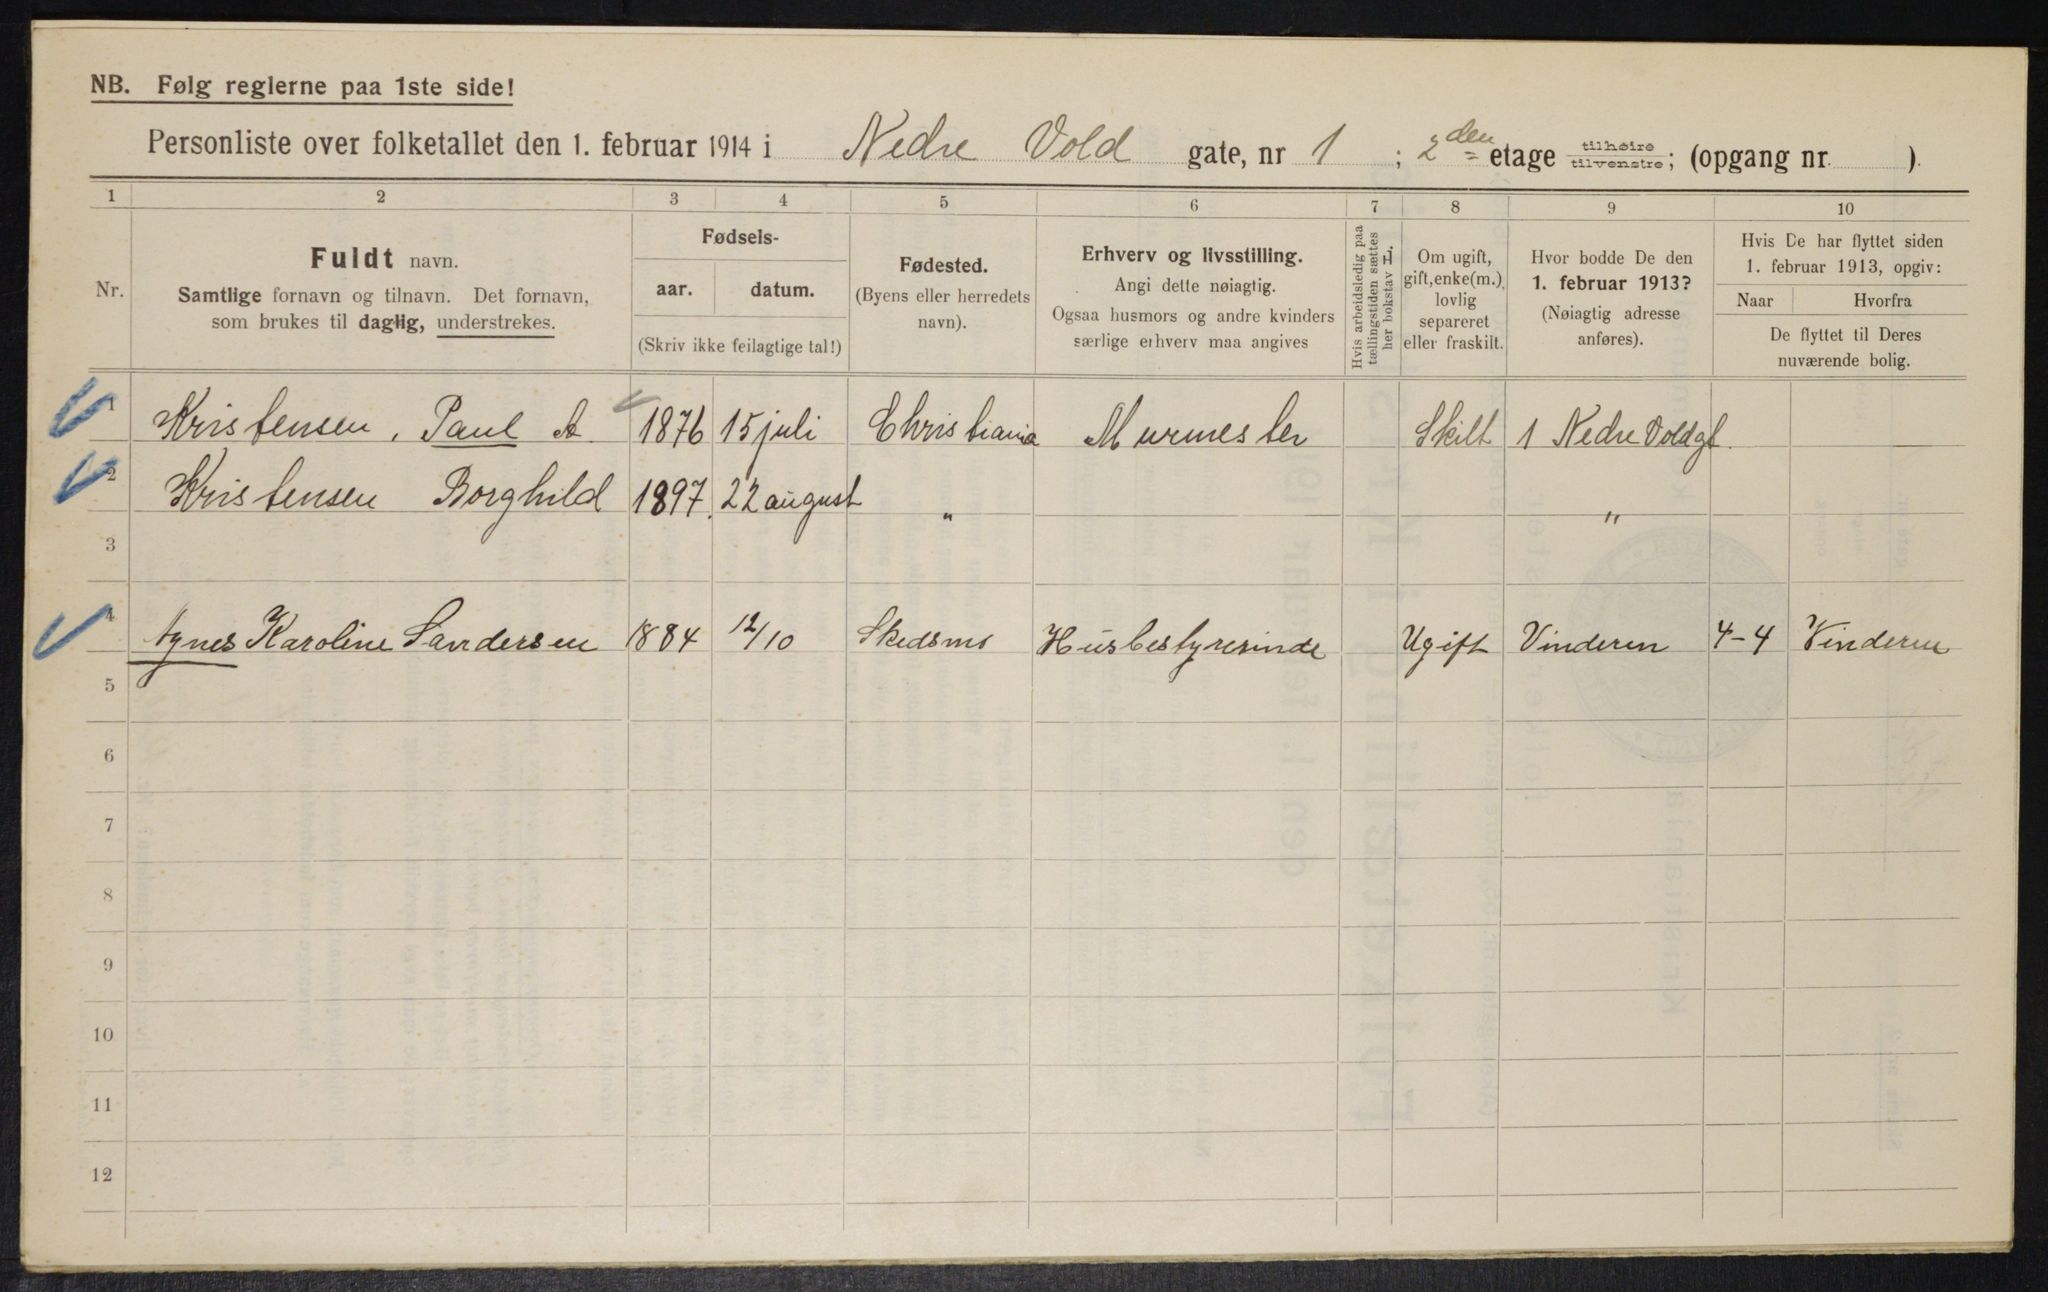 NB. Følg reglerne paa 1ste side!
Personliste over folketallet den 1. februar 1914 i Nedre Vold gate, nr 1 ; 2den etage tilhøire tilvenstre; (opgang nr ).
1 2 3 4 5 6 7 8 9 10
Nr.
Fuldt navn.
Samtlige fornavn og tilnavn. Det fornavn,
som brukes til daglig, understrekes.
Fødsels-
aar. datum.
(Skriv ikke feilagtige tal!)
Fødested.
(Byens eller herredets
navn).
Erhverv og livsstilling.
Angi dette nøiagtig.
Ogsaa husmors og andre kvinders
særlige erhverv maa angives
Hvis arbeidsledig paa
tællingstiden sættes
her bokstav L.
Om ugift,
gift, enke(m.),
lovlig
separeret
eller fraskilt.
Hvor bodde De den
1. februar 1913?
(Nøiagtig adresse
anføres).
Hvis De har flyttet siden
1. februar 1913, opgiv:
Naar Hvorfra
De flyttet til Deres
nuværende bolig.
1 Kristensen, Paul A. 1876 15 juli Christiania Murmester Skilt 1 Nedre Voldgt.
2 Kristensen Borghild 1897. 22 august " "
3
4 Agnes Karoline Sandersen 1884 12/10 Skedsmo Husbestyresinde Ugift Vinderen 4-4 Vinderen
5
6
7
8
9
10
11
12